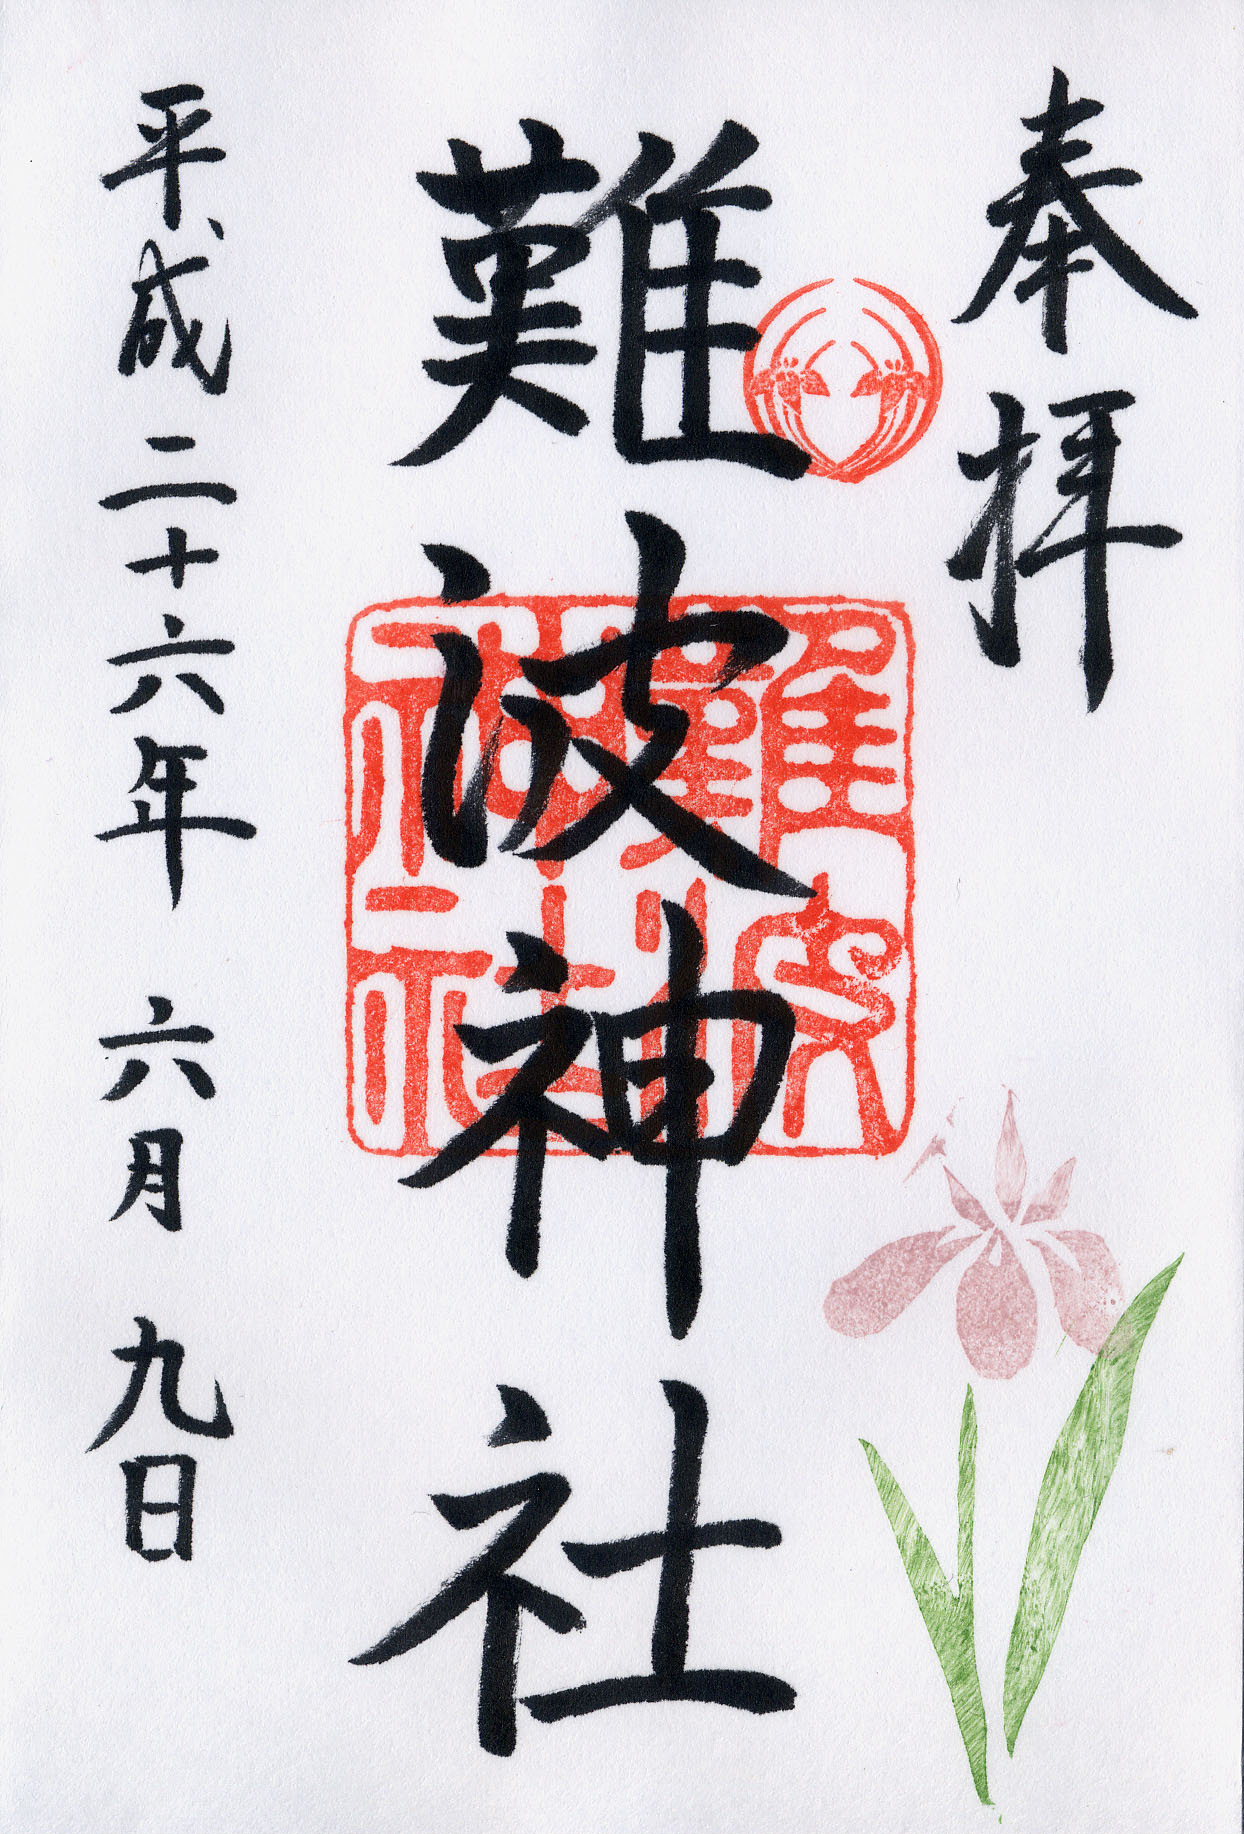 奉拝
難波神社
難波神社
平成二十六年 六月 九日